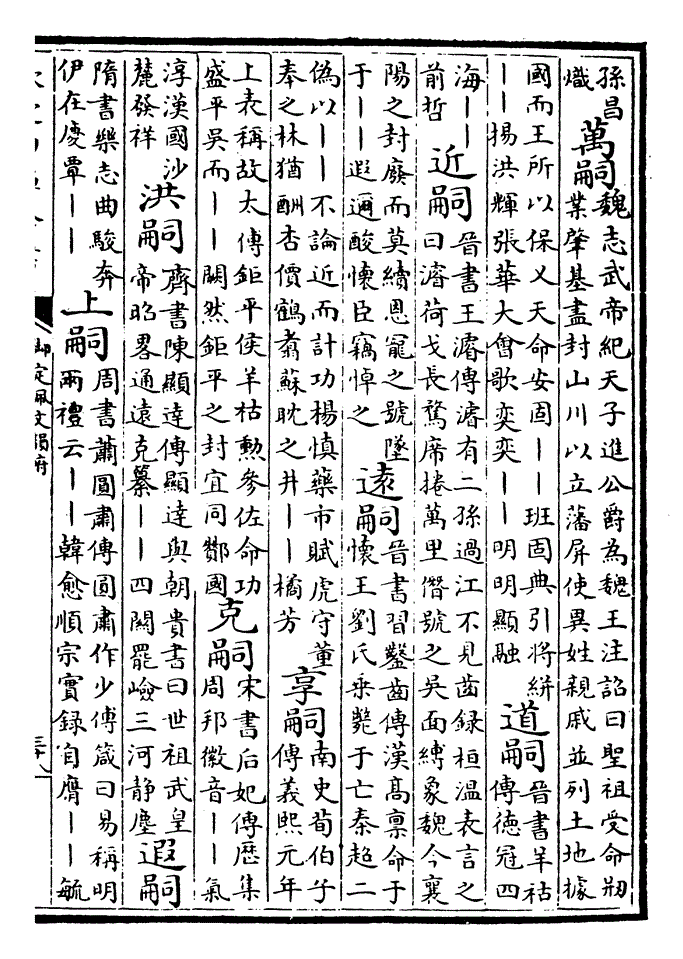 孫昌
熾
萬嗣
魏志武帝紀天子進公爵為魏王注詔曰聖祖受命刱
業肇基畫封山川以立藩屏使異姓親戚並列土地據
國而王所以保乂天命安固丨丨班固典引將絣
丨丨揚洪輝張華大會歌奕奕丨丨明明顯融
道嗣
晉書羊祜
傳徳冠四
海丨丨
前哲
近嗣
晉書王濬傳濬有二孫過江不見齒録桓温表言之
曰濬荷戈長騖席捲萬里僭號之吳面縛象魏今襄
陽之封廢而莫續恩寵之號墜
于丨丨遐邇酸懷臣竊悼之
逺嗣
晉書習鑿齒傳漢髙稟命于
懷王劉氏乘斃于亡秦超二
偽以丨丨不論近而計功楊慎藥市賦虎守董
奉之林猶酬杏價鶴翥蘇耽之井丨丨橘芳
享嗣
南史荀伯子
傳義熙元年
上表稱故太傅鉅平侯羊祜勲參佐命功
盛平吳而丨丨闕然鉅平之封宜同酇國
克嗣
宋書后妃傳歴集
周邦徽音丨丨氣
淳漢國沙
麓發祥
洪嗣
齊書陳顯達傳顯達與朝貴書曰世祖武皇
帝昭畧通遠克纂丨丨四關罷嶮三河静塵
遐嗣
隋書樂志曲駿奔
伊在慶覃丨丨
上嗣
周書蕭圓肅傳圓肅作少傅箴曰易稱明
兩禮云丨丨韓愈順宗實録自膺丨丨毓
御定佩文韻府